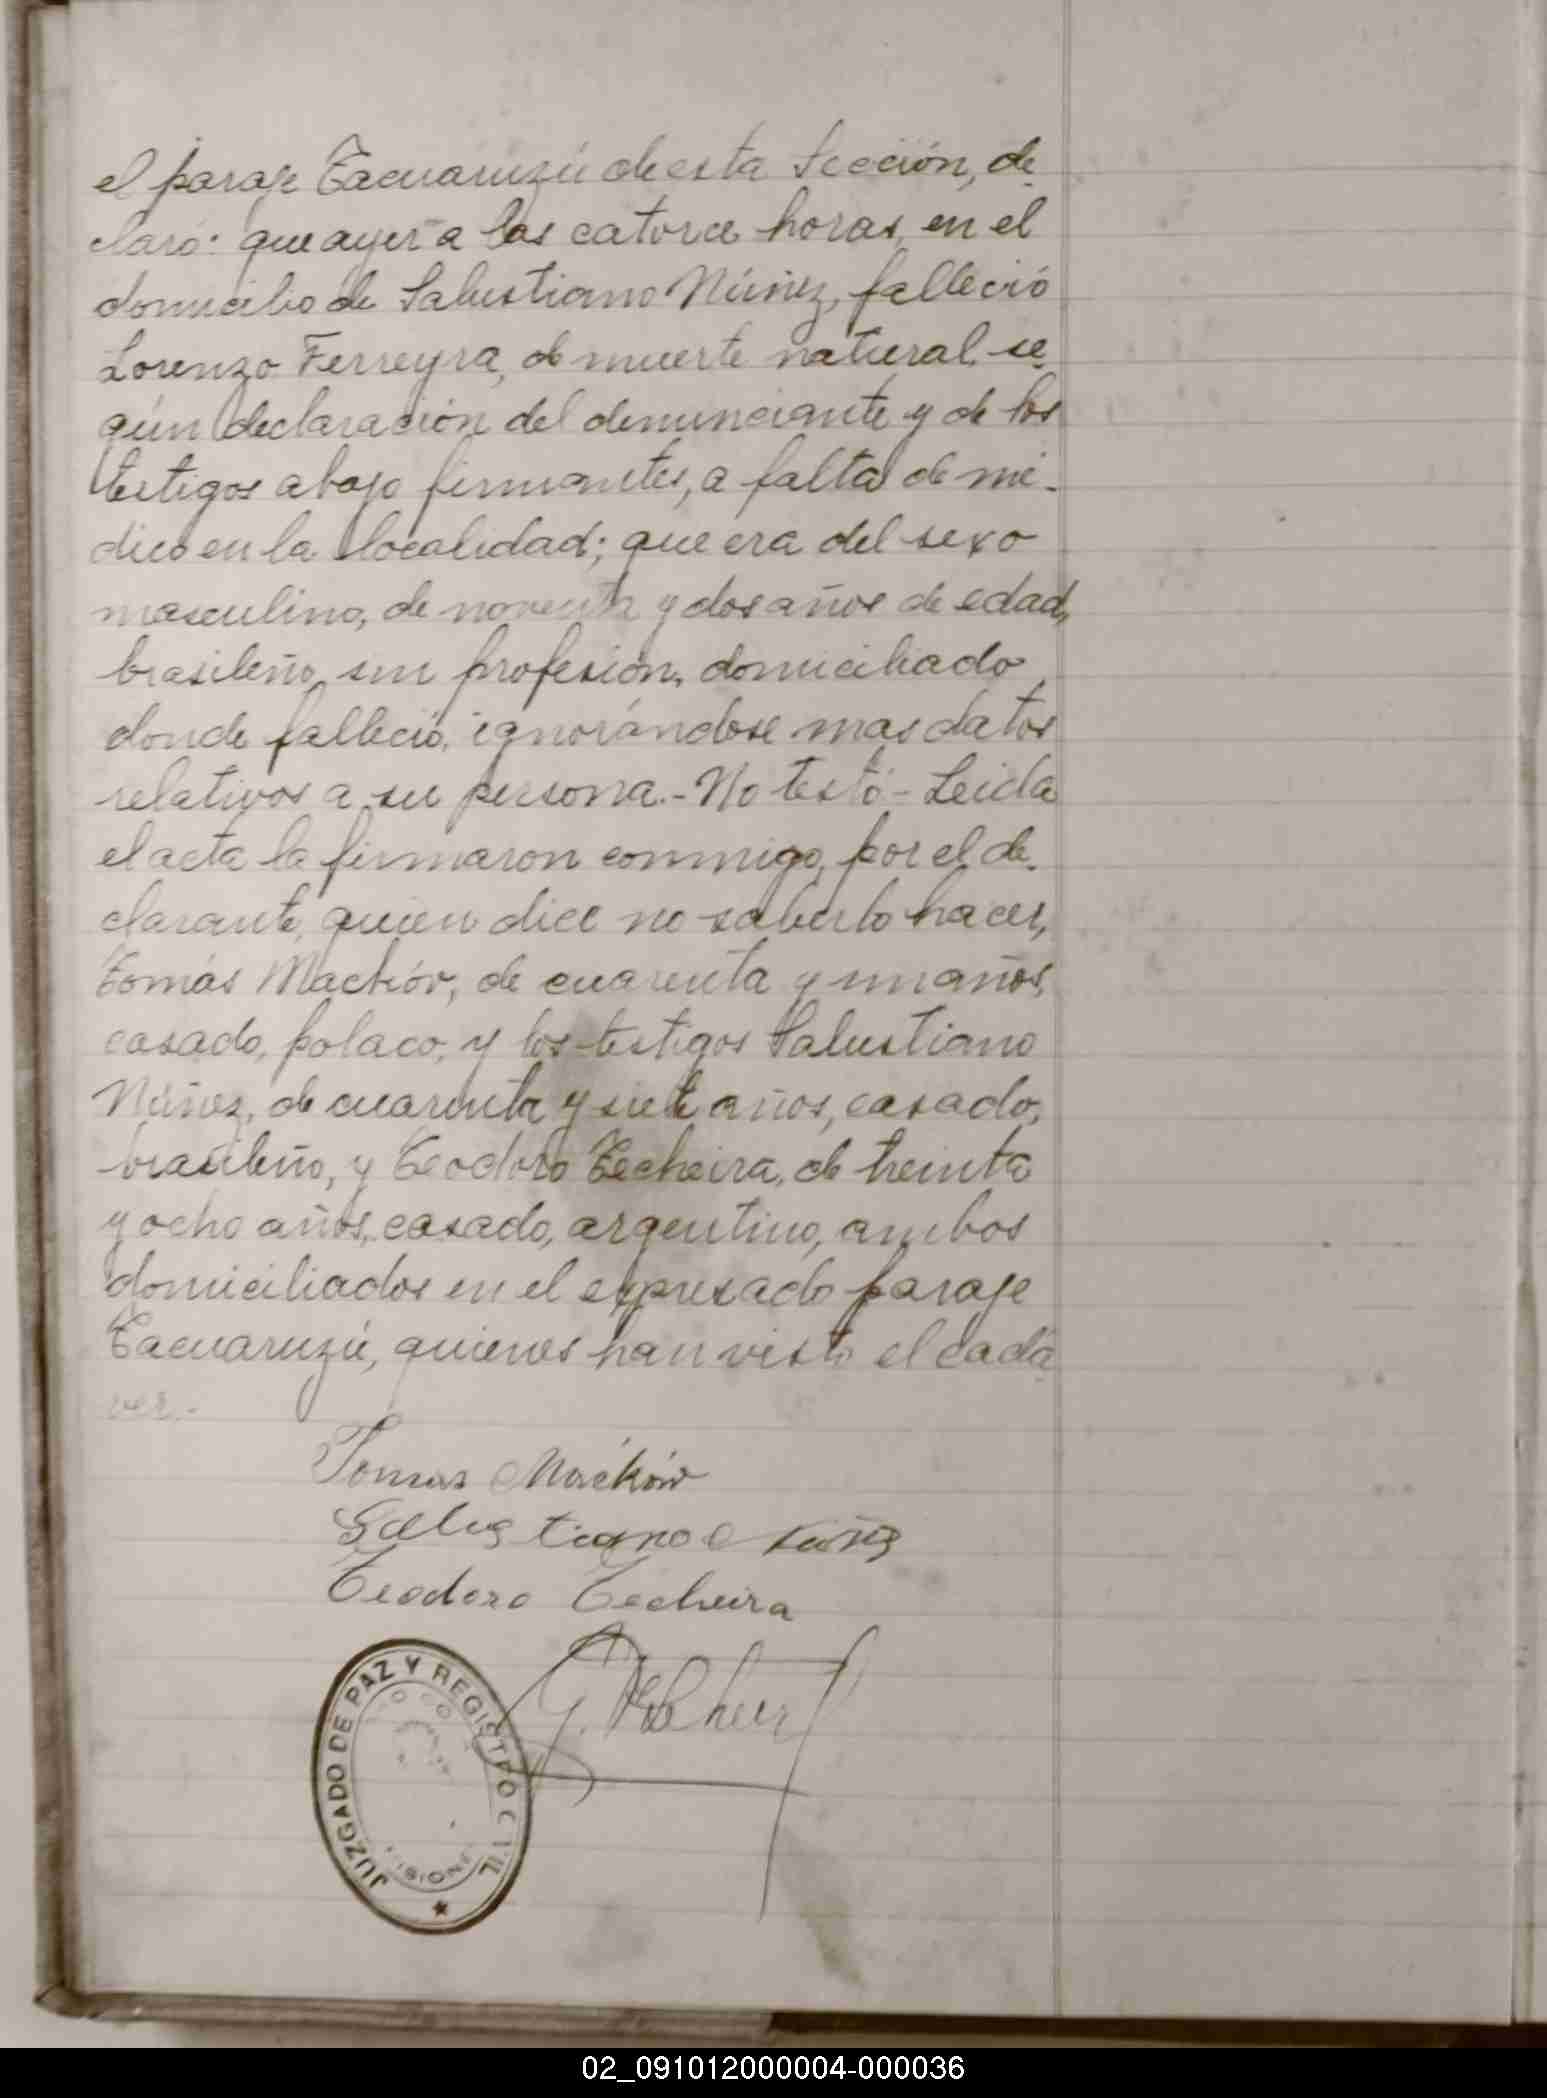 el paraje Tacuaruzú de esta Sección, de-
claró: que ayer a las catorce horas, en el
domicilio de Salustiano Núñez, falleció
Lorenzo Ferreyra, de muerte natural, se-
gún declaración del denunciante y de los
testigos abajo firmantes, a falta de mé-
dico en la localidad; que era del sexo
masculino, de noventa y dos años de edad,
brasileño, sin profesión, domiciliado
donde falleció, ignorándose mas datos
relativos a su persona.- No testó - Leida
el acta la firmaron conmigo, por el de-
clarante, quien dice no saberlo hacer,
Tomás Mackór, de cuarenta y un años,
casado, polaco, y los testigos Salustiano
Núñez, de cuarenta y siete años, casado,
brasileño, y Teodoro Techeira, de treinta
y ocho años, casado, argentino, ambos
domiciliados en el expresado paraje
Tacuaruzú, quienes han visto el cadá-
ver.-
Tomas Maćków
Salustiano Nuñez
Teodoro Techeira
JUZGADO DE PAZ Y REGISTRO CIVIL
MISIONES
02_091012000004-000036